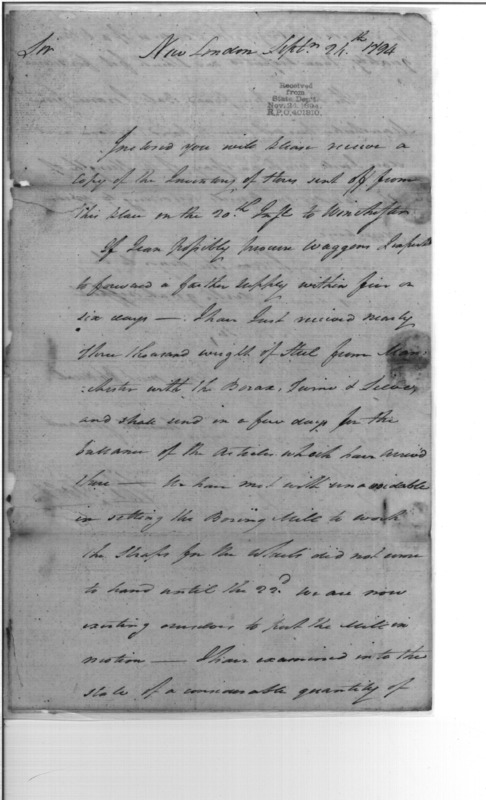 Sir New London Septr 24.th 1794
Received
from
State Dept.
Nov. 1894.
R.P.O. 401810.
Inclosed you will please receive a
Copy of the Inventory of Stores sent off from
this place on the 20.th Inst. to Winchester
If I can Possibly procure waggons I expect
to forward a farther supply within five or
six days — I have Just received nearly
three thousand weight of Steel from Man
:chester with the Borax, Twine &
and shall send in a few days for the
ballance of the Articles which have arrived
there — We have met with unavoidable
in setting the Boring Mill to work
the Straps for the Wheels did not come
to hand until the 22.d we are now
exerting ourselves to put the Mill in
motion — I have examined into the
state of a considerable quantity of